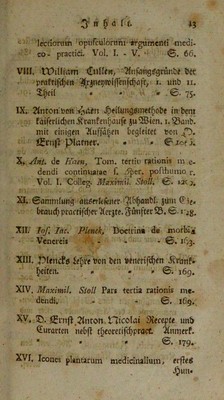 Inhalt. 23
lectiorum opusculorum argumenti medi-
co-practici. Vol. I. - V. S. 66.
VIII. William Cullen, Anfangsgründe der
praktischen Arzneywissenschaft, 1. und 11.
Theil S. 75.
IX. Anton von Haen Heilungsmethode in dem
kaiserlichen Krankenhause zu Wien. 1. Band.
mit einigen Aufsätzen begleitet von D.
Ernst Platner.
X. Ant. de Haen, Tom. tertiu rationis me-
dendi continuatae
Vol. I. Colleg. Maximil. Stoll.
XI. Sammlung auserlesener Abhandl. zum Ge-
brauch practischer Aerzte. Fünfter B. S. 128.
XII. Jos. Jac. Plenck, Doctrina de morbis
Venereis S. 163.
XIII. Plencks Lehre von den venerischen Krank-
heiten. S. 169.
XIV. Maximil. Stoll Pars tertia rationis me-
dendi. S. 169.
XV. D. Ernst Anton. Nicolai Recepte und
Curarten nebst theoretischpract. Anmerk.
S. 179.
XVI. Icones plantarum medicinalium, erstes
Hun-